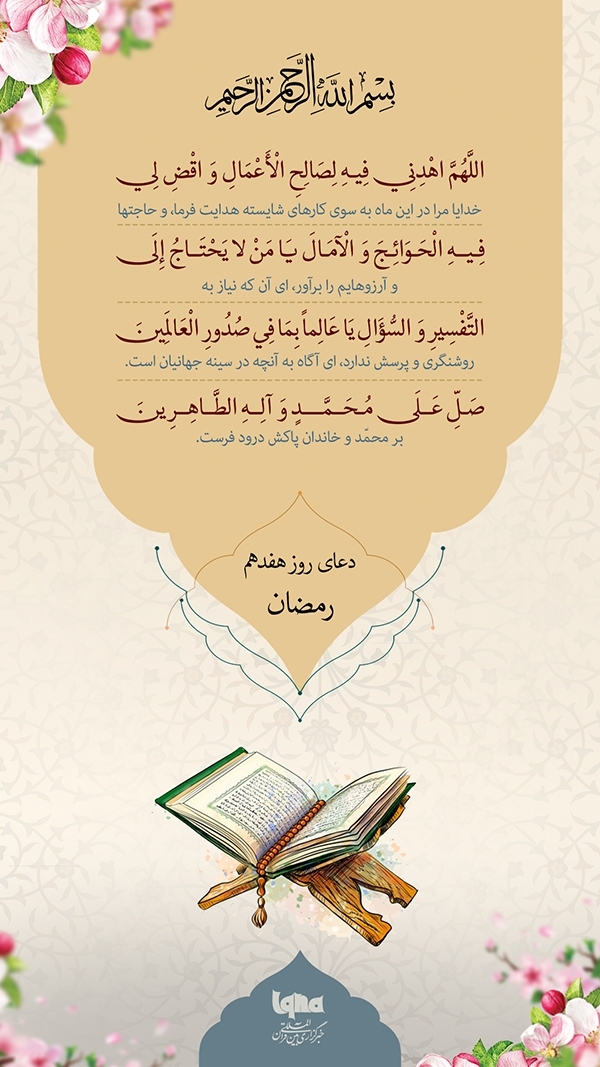 بِسْمِ اللَّهِ الرَّحْمَٰنِ الرَّحِيمِ
اللَّهُمَّ اهْدِنِي فِيهِ لِصَالِحِ الْأَعْمَالِ وَ اقْضِ لِي
خدایا مرا در این ماه به سوی کارهای شایسته هدایت فرما، و حاجتها
فِيهِ الْحَوَائِجَ وَ الْآمَالَ يَا مَنْ لا يَحْتَاجُ إِلَى
و آرزوهایم را برآور، ای آن که نیاز به
التَّفْسِيرِ وَ السُّؤَالِ يَا عَالِماً بِمَا فِي صُدُورِ الْعَالَمِينَ
روشنگری و پرسش ندارد، ای آگاه به آنچه در سینه جهانیان است.
صَلِّ عَلَى مُحَمَّدٍ وَ آلِهِ الطَّاهِرِينَ
بر محمّد و خاندان پاکش درود فرست.
دعای روز هفدهم
رمضان
iqna
خبرگزاری بین المللی قرآن